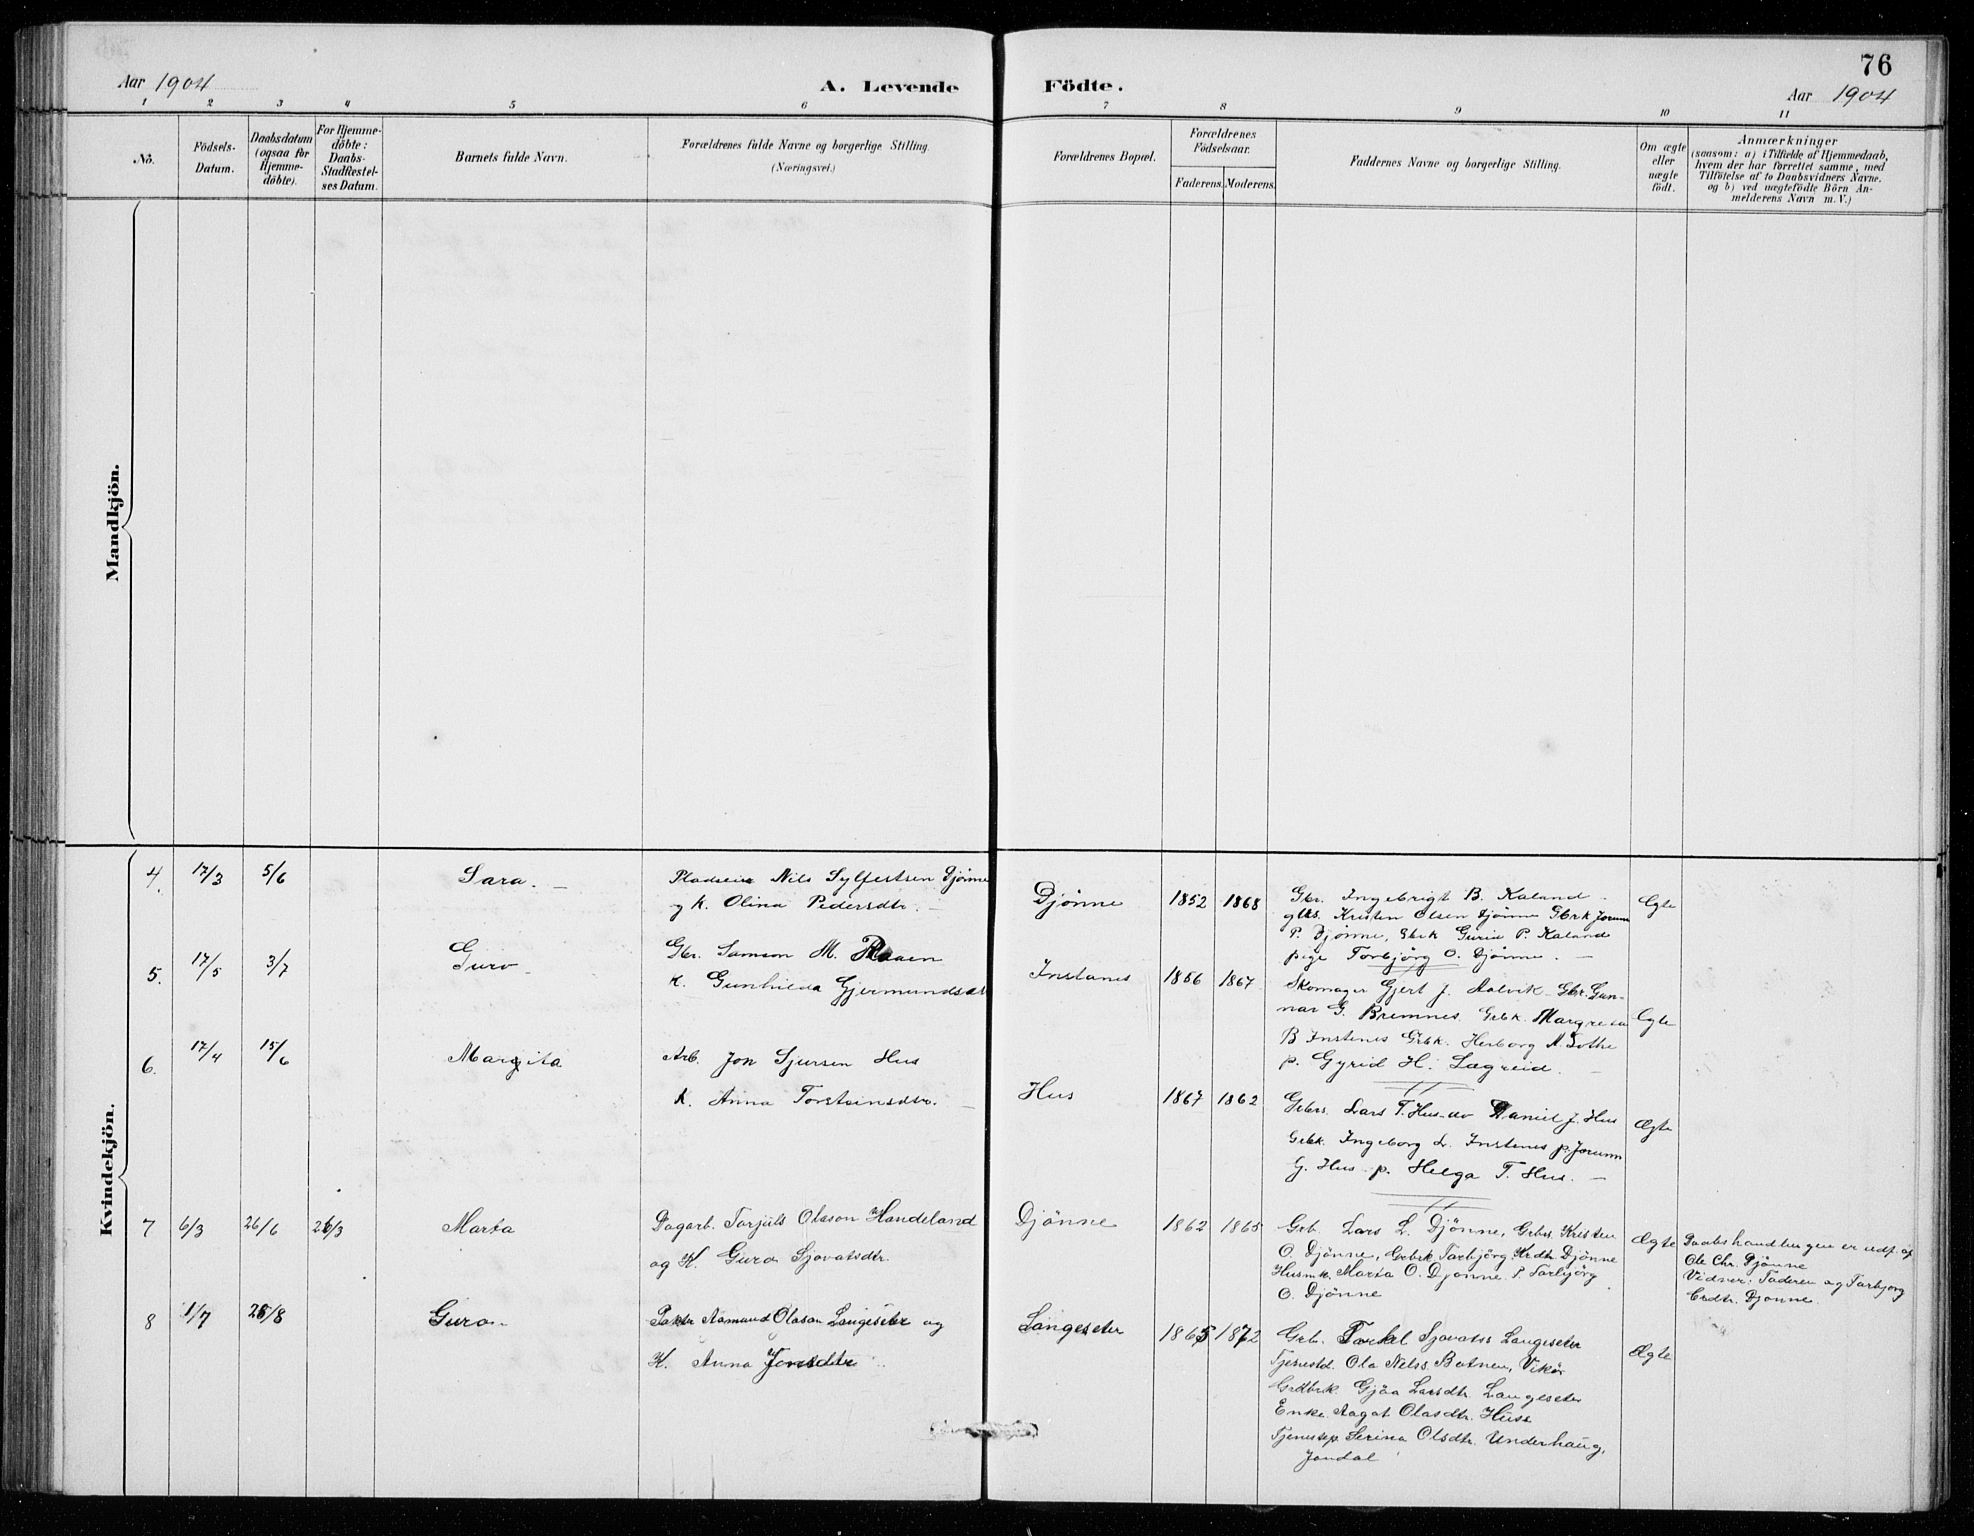 76
Aar 1904 A. Levende Födte. Aar 1904
1 2 3 4 5 6 7 8 9 10 11
No. Födsels-Datum. Daabsdatum (ogsaa for Hjemme-döbte). For Hjemme-döbte: Daabs-Stadfæstel-ses Datum. Barnets fulde Navn. Forældrenes fulde Navne og borgerlige Stilling. (Næringsvei.) Forældrenes Bopæl. Forældrenes Födselsaar. Faderens. Moderens. Faddernes Navne og borgerlige Stilling. Om ægte eller uægte födt. Anmærkninger (saasom: a) i Tilfælde af Hjemmedaab, hvem der har forrettet samme, med Tilföielse af to Daabsvidners Navne. og b) ved uægtefödte Börn An-melderens Navn m. V.)
Mandkjön.
Kvindekjön.
4. 17/3 5/6 Sara. Pladseier Nils Sylfestsen Djönne
og k. Olina Pedersdtr. Djönne 1852 1868 Gbr. Ingebrigt B. Kaland
Kristen Olsen Djönne Gbrk Jorunn
P. Djönne, Gbrk Gurid P. Kaland
pige Torbjörg O. Djönne. Ægte
5. 17/5 3/7 Guro Gbr. Samson M.
k. Gunhilda Gjermundsdtr Instanes 1856 1867 Skomager Gjert J. Aalvik Gbr. Gun-
nar G. Bremnes. Grbk. Margreta
B Instenes Grbk. Herborg A. Lothe
p. Gyrid H. Lægreid. Ægte
6. 17/4 15/6 Margita Arb. Jon Sjursen Hus
k. Anna Torsteinsdtr. Hus 1867 1862 Grbrs. Lars T. Hus do Daniel J. Hus
Grbk. Ingeborg L. Instenes p. Jorunn
G. Hus p. Helga T. Hus. Ægte
7 6/3 26/6 26/3 Marta Dagarb. Torjuls Olason Handeland
og K. Guro Sjovatsdtr. Djönne 1862 1865 Grb. Lars L. Djönne, Grbr. Kristen
O. Djönne, Grbrk Torbjörg Krdtr. Djönne
Husmk. Marta O. Djönne P. Torbjörg
O. Djönne Ægte Daabshandlingen er udf. af
Ole Chr. Djönne
Vidner: Faderen og Torbjorg
Crdtr. Djonne
8 1/7 28/8 Guro Aamund Olason Langeseter og
K. Anna Jonsdtr Langeseter 1865 1872 Grb. Torkel Sjovatss Langeseter
Tjenestd. Ola Nilss Botnen, Vikör
Grdbrk. Gjöa Larsdtr. Langeseter
Enke. Aagot Olasdtr. Huse
Tjenestep. Serina Olsdtr. Underhaug,
Jondal Ægte